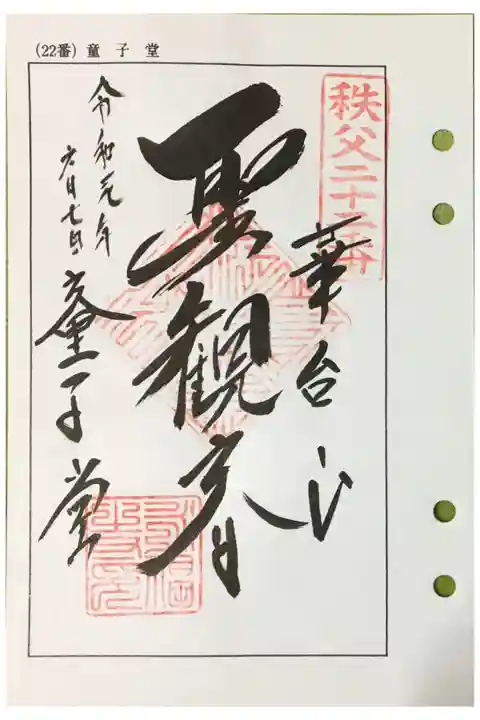 (22番) 童子堂
秩父二十二番
華台山
聖観音
令和元年
六月七日
童子堂